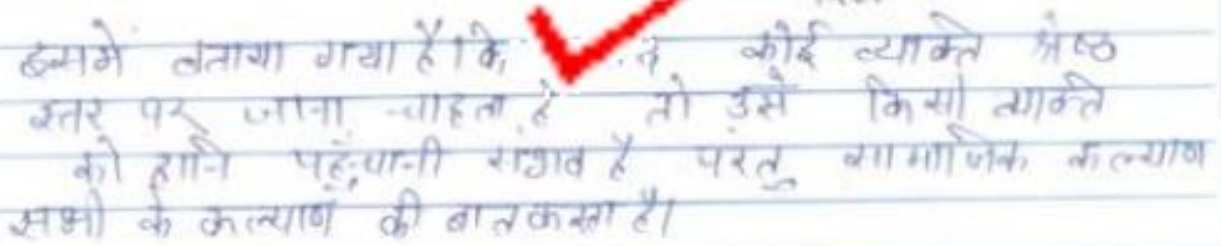 इसमें बताया गया है कि कोई व्यक्ति श्रेष्ठ
स्तर पर जाना चाहता है तो उसे किसी व्यक्ति
को हानि पहुंचानी संभव है परंतु सामाजिक कल्याण
सभी के कल्याण की बात करता है।